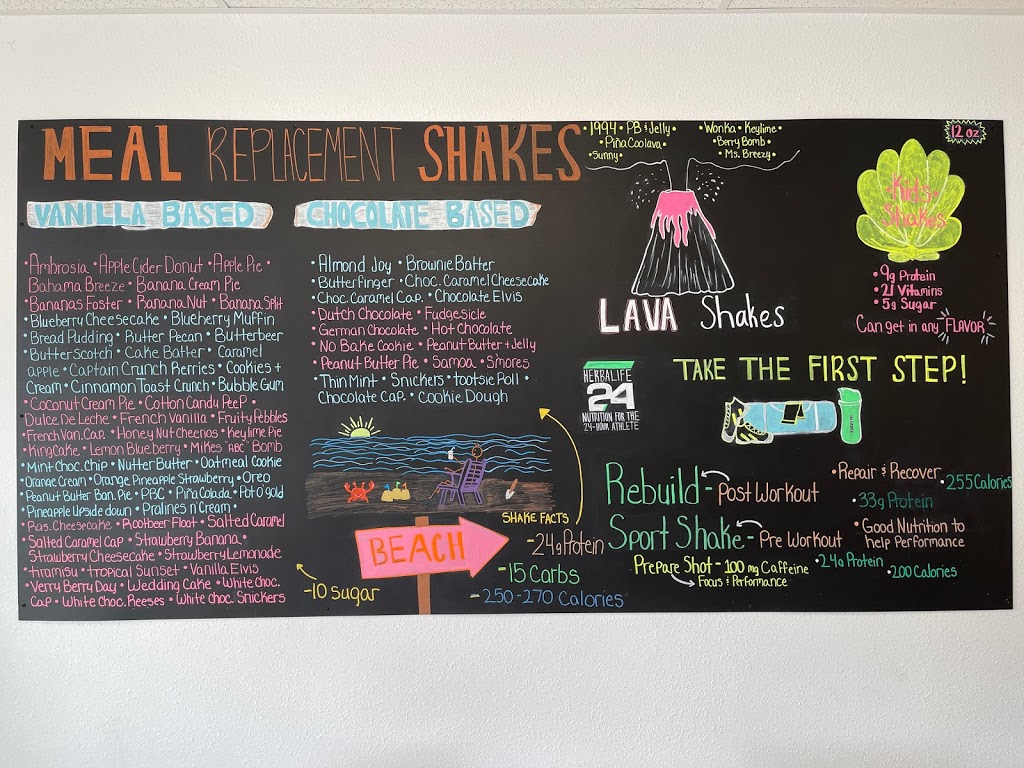 MEAL REPLACEMENT SHAKES
VANILLA BASED
•Ambrosia •Apple Cider Donut •Apple Pie •
Bahama Breeze • Banana Cream Pie
•Bananas Foster • Banana Nut • Banana Split
•Blueberry Cheesecake • Blueberry Muffin
•Bread Pudding • Butter Pecan • Butterbeer
•Butterscotch • Cake Batter • Caramel
apple • Captain Crunch Berries • Cookies +
Cream • Cinnamon Toast Crunch • Bubble Gum
•Coconut Cream Pie • Cotton Candy Peep •
Dulce De Leche • French Vanilla • Fruity Pebbles
•French Van. Cap. • Honey Nut Cheerios • Keylime Pie
•King Cake • Lemon Blueberry • Mikes "ABC" Bomb
•Mint Choc. Chip • Nutter Butter • Oatmeal Cookie
Orange Cream • Orange Pineapple Strawberry • Oreo
•Peanut Butter Ban. Pie • PBC • Piña Colada • Pot O' gold
•Pineapple Upside down • Pralines n' Cream •
•Ras. Cheesecake • Rootbeer Float • Salted Caramel
•Salted Caramel Cap • Strawberry Banana •
Strawberry Cheesecake • Strawberry Lemonade
•tiramisu • tropical Sunset • Vanilla Elvis
•Verry Berry Day • Wedding Cake • White choc.
Cap • White choc. Reeses • White choc. Snickers
CHOCOLATE BASED
•Almond Joy • Brownie Batter
•Butterfinger • Choc. Caramel Cheesecake
•Choc. Caramel Cap. • Chocolate Elvis
•Dutch Chocolate • Fudgesicle
•German Chocolate • Hot Chocolate
•No Bake Cookie • Peanut Butter + Jelly
•Peanut Butter Pie • Samoa • S'mores
•Thin Mint • Snickers • tootsie Roll •
Chocolate Cap. • Cookie Dough
BEACH
SHAKE FACTS
-24g Protein
-15 Carbs
-10 sugar
-250-270 Calories
•1994 • PB & Jelly •
•Piña Coolava •
•Sunny•
Wonka • Keylime •
•Berry Bomb •
• Ms. Breezy •
LAVA Shakes
12 oz
-Kids-
Shakes
•9g Protein
•21 Vitamins
•5g Sugar
Can get in any FLAVOR
HERBALIFE
24
NUTRITION FOR THE
24-HOUR ATHLETE
TAKE THE FIRST STEP!
Rebuild - Post Workout
•Repair & Recover
•33g Protein
•255 Calories
Sport Shake - Pre Workout
•Good Nutrition to
help Performance
•24g Protein
•200 Calories
Prepare Shot - 100 mg Caffeine
Focus & Performance